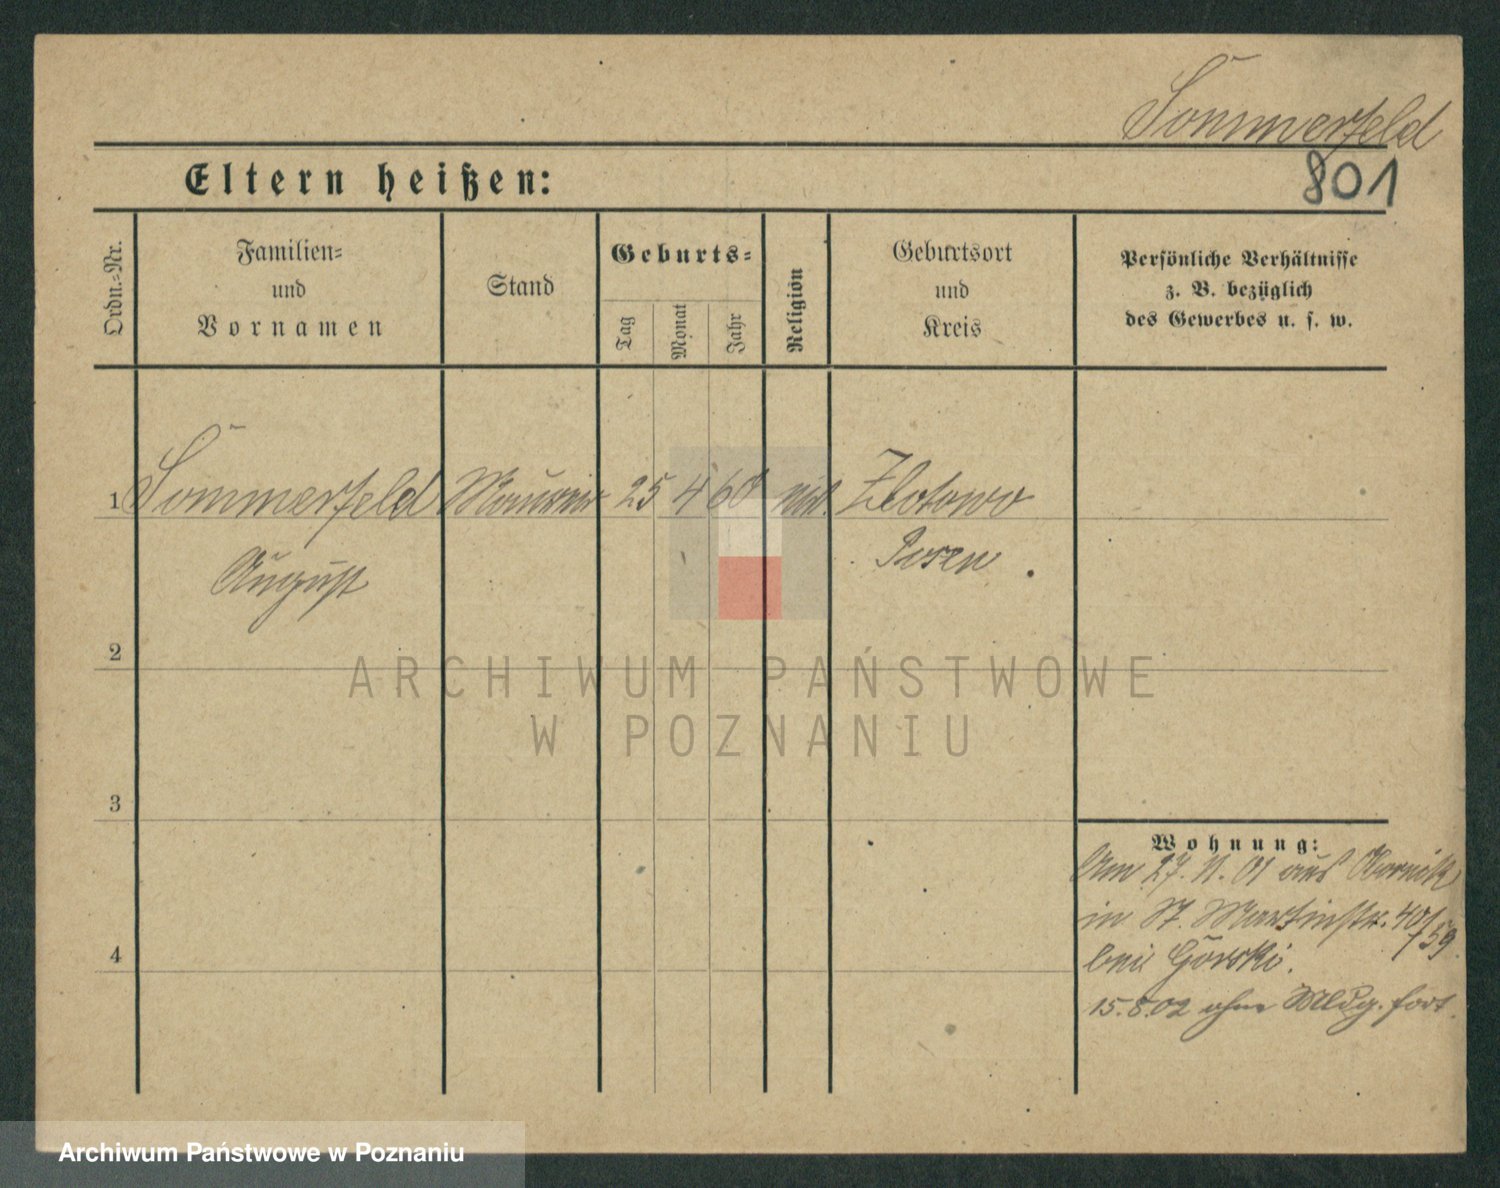 Sommerfeld
801
Eltern heißen:
Ordn.=Nr.
Familien=
und
Vornamen
Stand
Geburts=
Tag
Monat
Jahr
Religion
Geburtsort
und
Kreis
Persönliche Verhältnisse
z. B. bezüglich
des Gewerbes u. s. w.
1 Sommerfeld Maurer 25 4 60 Zlotowo
August Posen.
2
ARCHIWUM PAŃSTWOWE
W POZNANIU
3
Wohnung:
Am 27. 11. 01 aus Obornik
in St. Martinstr. 40/59.
bei Górski.
4
15.8.02 ohne Mldg. fort.
Archiwum Państwowe w Poznaniu